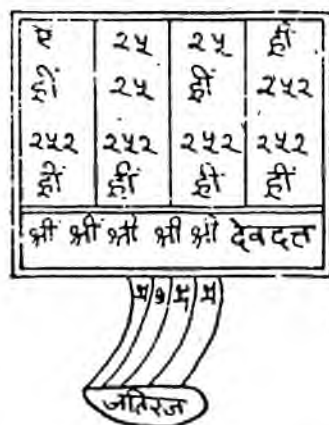 ए २५ २५ ह्रीं
ह्रीं २५ ह्रीं २५२
२५२ २५२ २५२ २५२
ह्रीं ह्रीं ह्रीं ह्रीं
श्रीं श्रीं श्रीं श्रीं श्रीं देवदत्त